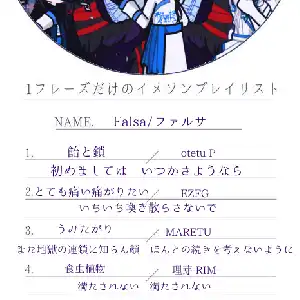 1フレーズだけのイメソンプレイリスト
NAME. Falsa/ファルサ
1. 飴と鎖 / otetu P
初めましては いつかさようなら
2.とても痛い痛がりたい / EZFG
いちいち喚き散らさないで
3. うみたがり / MARETU
また地獄の連鎖に知らん顔 ほんとの続きを考えないように
4. 食虫植物 / 理芽 RIM
満たされない 満たされない